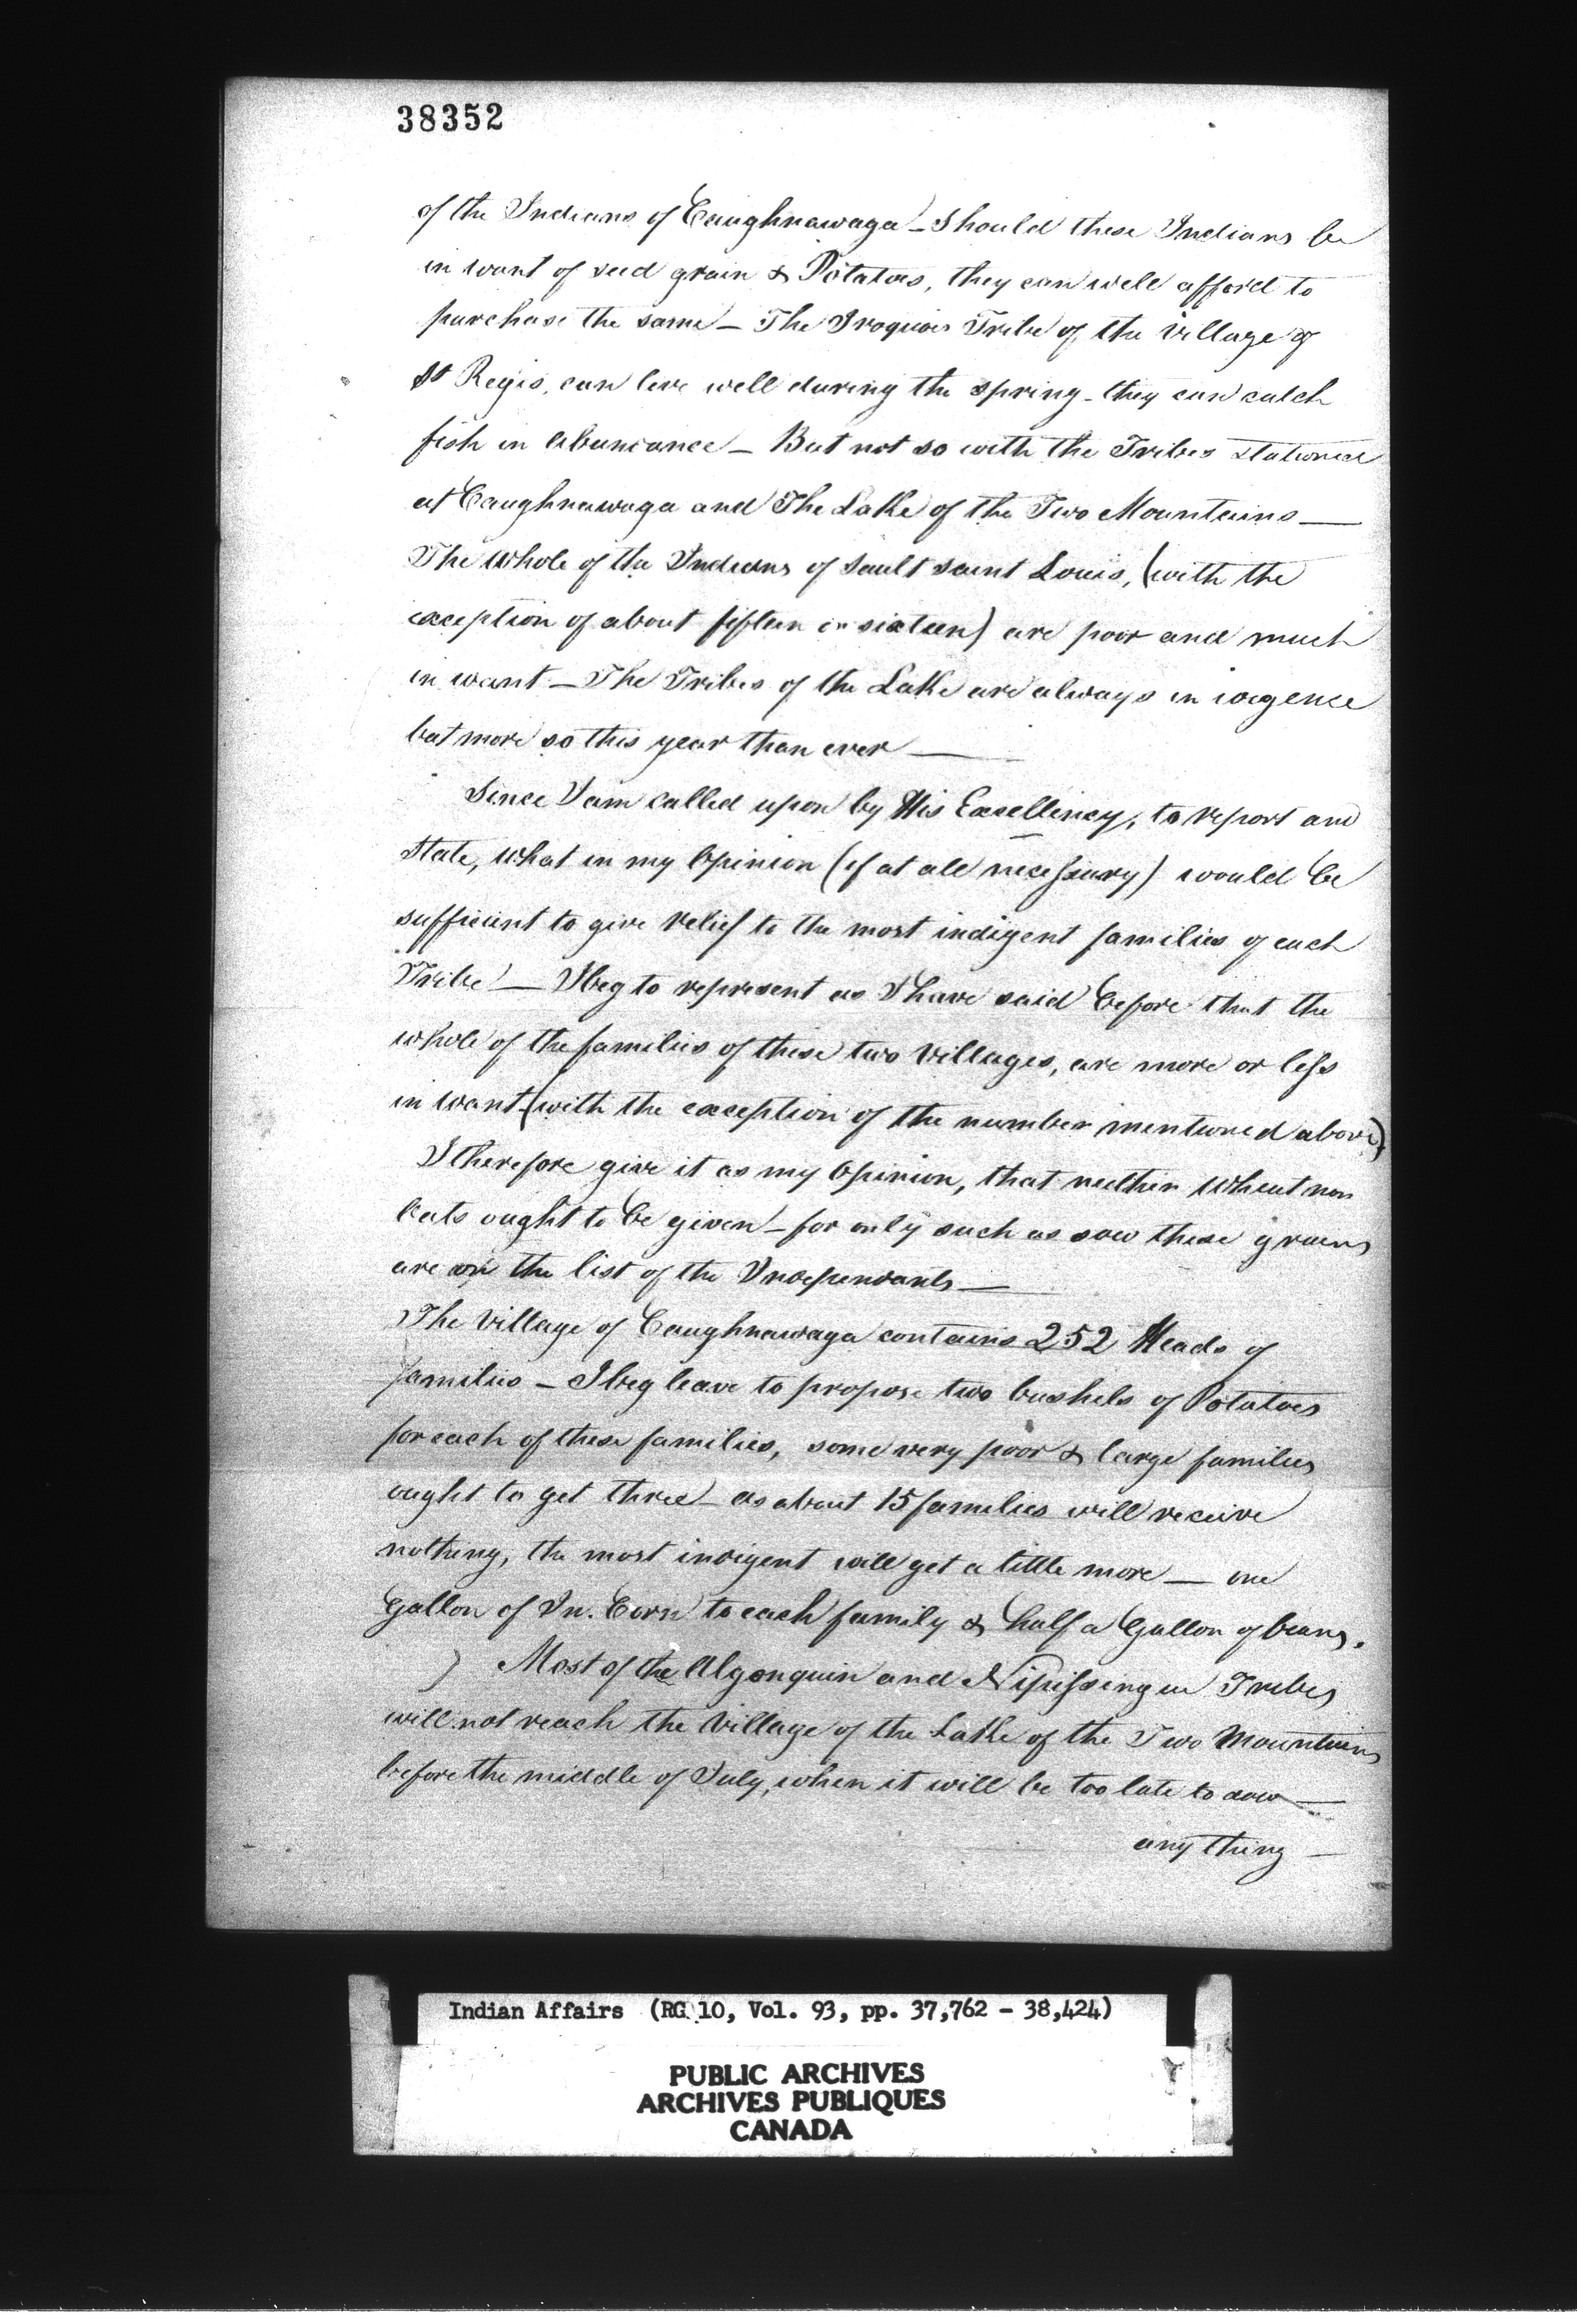 38352
of the Indians of Caughnawaga – Should these Indians be
in want of seed grain & Potatoes, they can well afford to
purchase the same – The Iroquois Tribe of the Village of
St Regis, can live well during the spring – they can catch
fish in abundance – But not so with the Tribes stationed
at Caughnawaga and The Lake of the Two Mountains —
The Whole of the Indians of Sault Saint Louis, (with the
exception of about fifteen or sixteen) are poor and much
in want – The Tribes of the Lake are always in indigence
but more so this year than ever —
Since I am called upon by His Excellency, to report and
State, What in my Opinion (if at all necessary) would be
sufficient to give relief to the most indigent families of each
Tribe – I beg to represent as I have said before that the
whole of the families of these two Villages, are more or less
in want – (with the exception of the number mentioned above)
I therefore give it as my Opinion, that neither Wheat nor
Oats ought to be given – for only such as sow these grains
are on the list of the Independants —
The Village of Caughnawaga contains 252 Heads of
families – I beg leave to propose two bushels of Potatoes
for each of these families, some very poor & large families
ought to get three – as about 15 families will receive
nothing, the most indigent will get a little more — one
Gallon of In. Corn to each family & half a Gallon of beans.
Most of the Algonquin and Nipissinguu Tribes
will not reach the Village of the Lake of the Two Mountains
before the middle of July, when it will be too late to sow —
any thing —
Indian Affairs (RG 10, Vol. 93, pp. 37,762 - 38,424)
PUBLIC ARCHIVES
ARCHIVES PUBLIQUES
CANADA